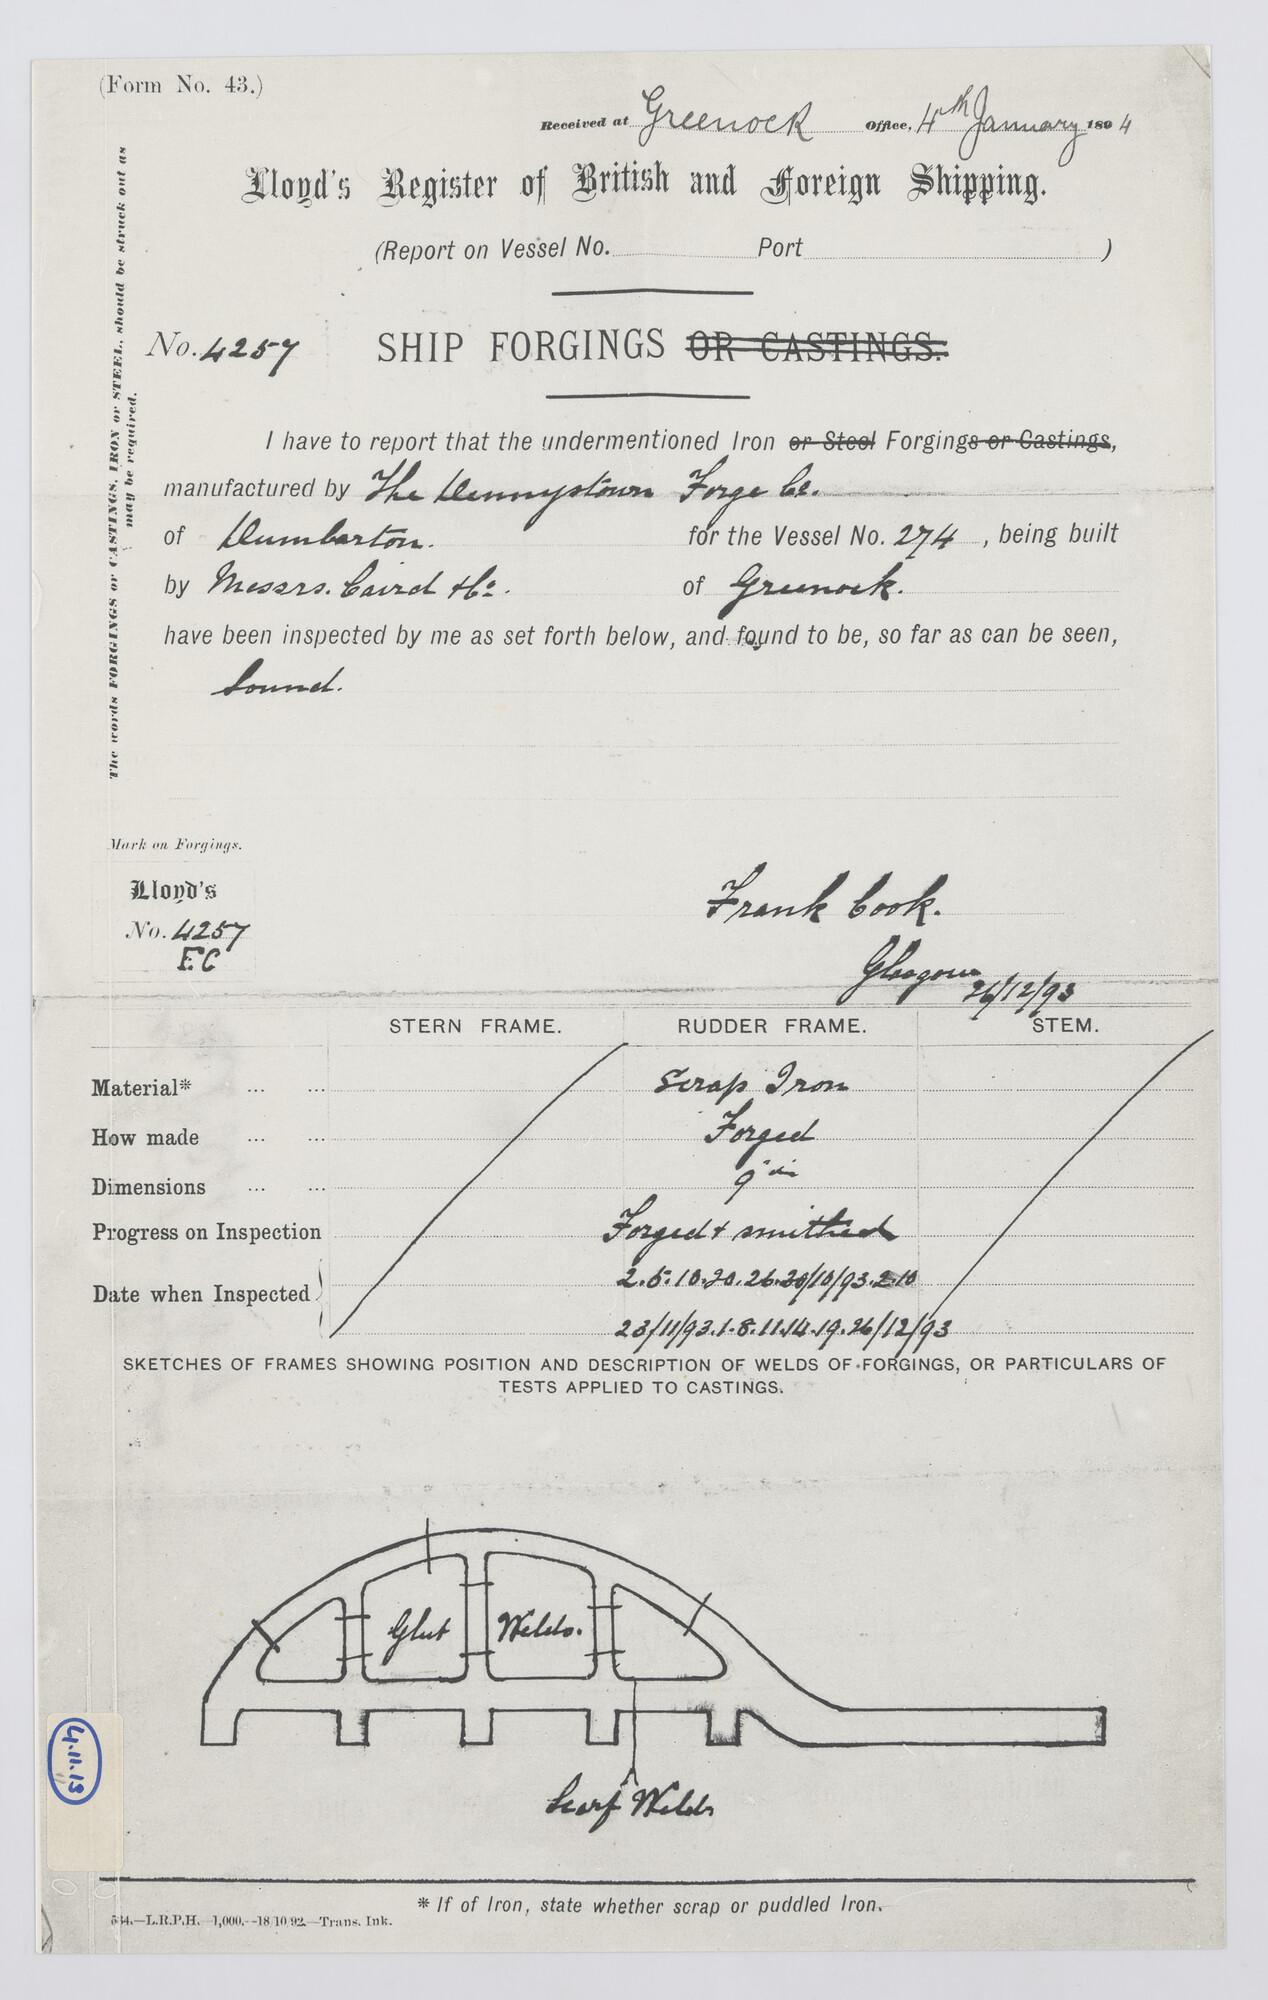 (Form No. 43.)
Received at Greenock Office, 4th January 1894
Lloyd's Register of British and Foreign Shipping.
(Report on Vessel No. Port )
No. 4257 SHIP FORGINGS OR CASTINGS.
The words FORGINGS or CASTINGS, IRON or STEEL, should be struck out as
may be required.
I have to report that the undermentioned Iron or Steel Forgings or Castings,
manufactured by The Dennystown Forge Co.
of Dumbarton. for the Vessel No. 274 , being built
by Messrs. Caird & Co. of Greenock.
have been inspected by me as set forth below, and found to be, so far as can be seen,
Sound.
Mark on Forgings.
Lloyd's
No. 4257
F.C
Frank Cook.
Glasgow
26/12/93
STERN FRAME. RUDDER FRAME. STEM.
Material* ... ... Scrap Iron
How made ... ... Forged
Dimensions ... ... 9"
Progress on Inspection Forged & smithed
Date when Inspected 2.5.10.20.26.30/10/93.2.10
23/11/93.1.8.11.14.19.26/12/93
SKETCHES OF FRAMES SHOWING POSITION AND DESCRIPTION OF WELDS OF FORGINGS, OR PARTICULARS OF
TESTS APPLIED TO CASTINGS.
Glut Welds.
Scarf Welds
4.11.13
* If of Iron, state whether scrap or puddled Iron.
534.—L.R.P.H.—1,000.—18/10/92.—Trans. Ink.